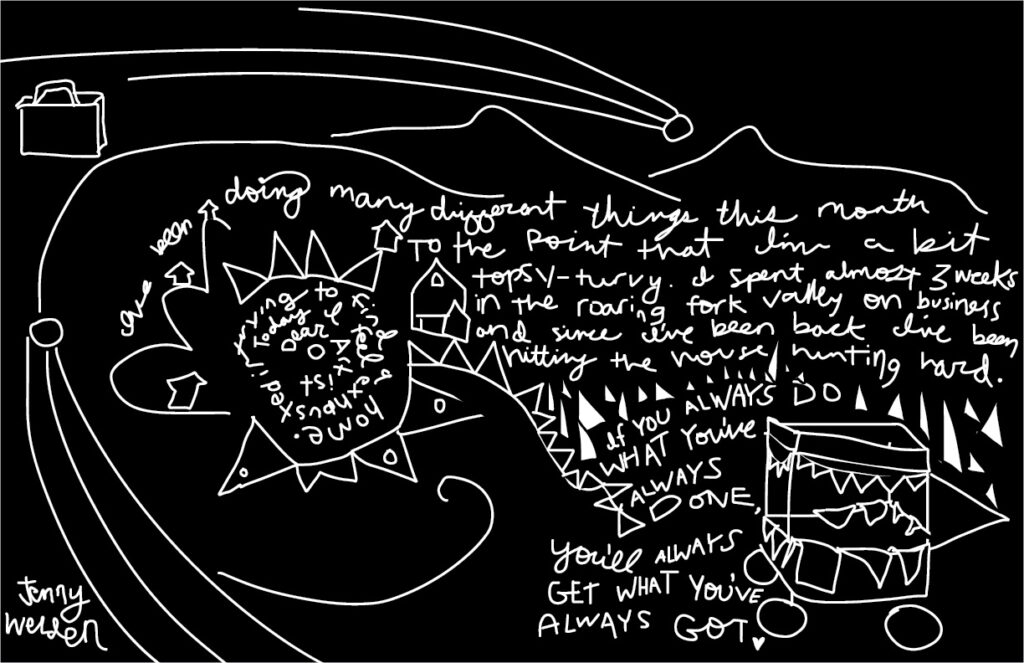 Dear
Artist
Today I feel exhausted
trying to find a home.
I've been doing many different things this month
TO the point that I'm a bit
topsy-turvy. I spent almost 3 weeks
in the roaring fork valley on business
and since I've been back I've been
hitting the house hunting hard.
If YOU ALWAYS DO
WHAT YOU'VE
ALWAYS
DONE,
You'll ALWAYS
GET WHAT YOU'VE
ALWAYS GOT.
Jenny
Welden